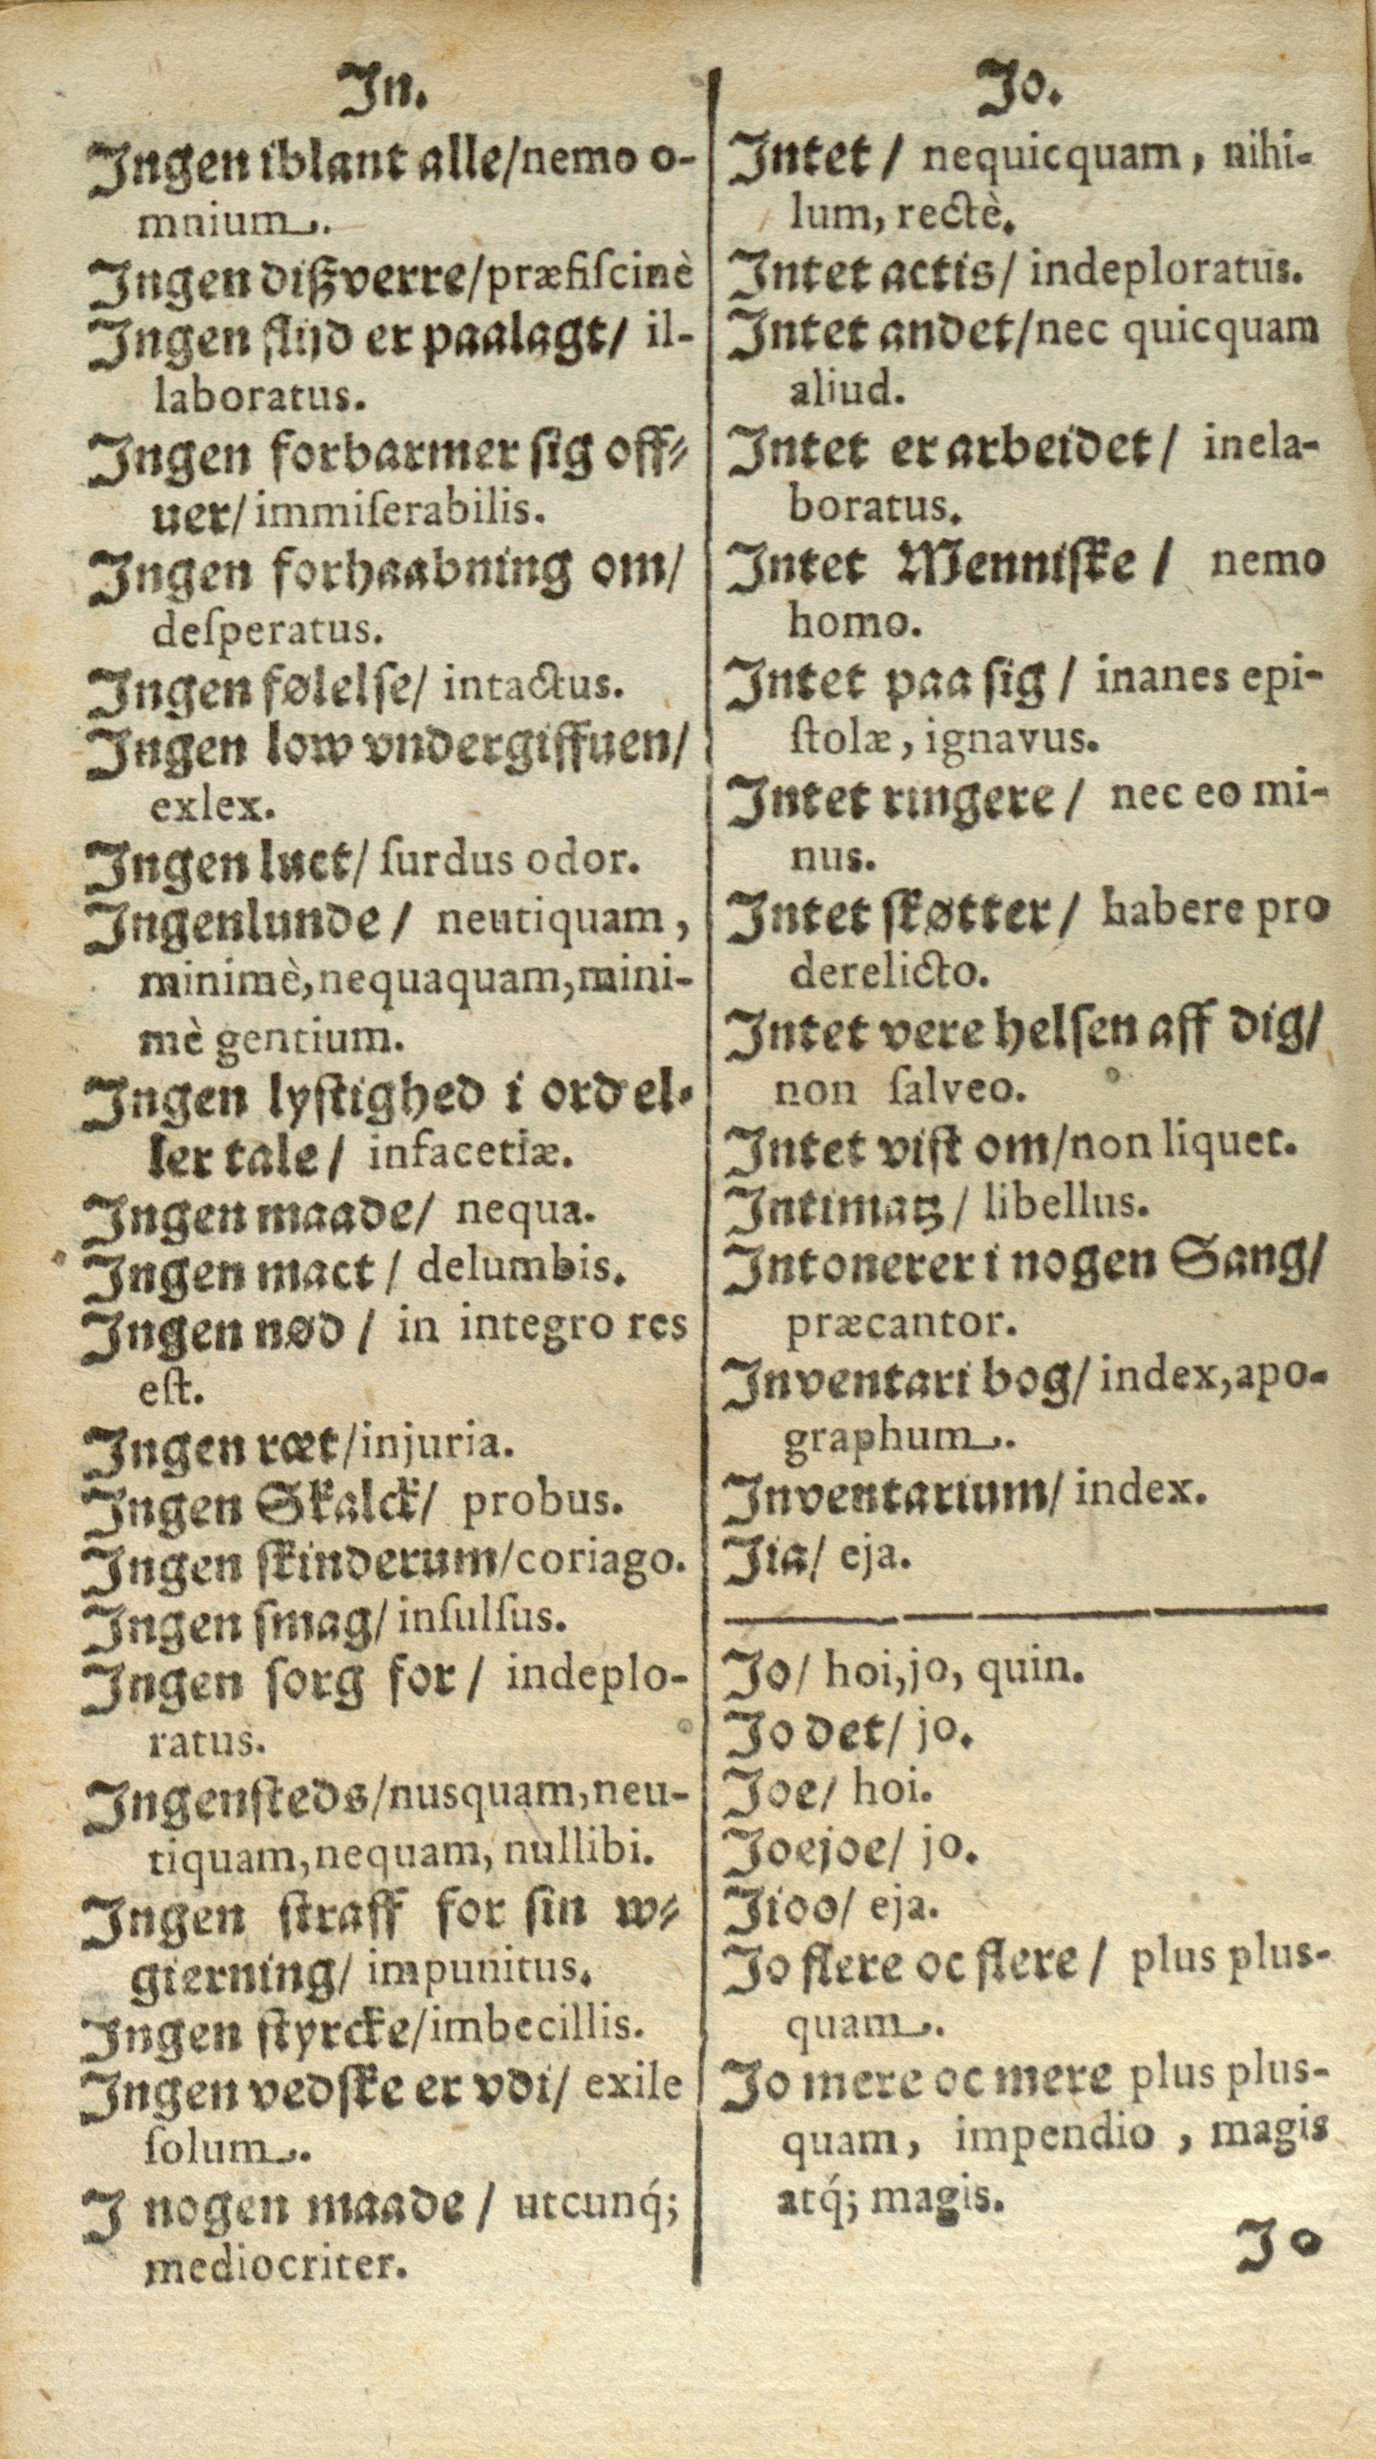 In.
Ingen iblant alle/nemo o-
mnium.
Ingen dißverre/præfiſcinè
Ingen flijd er paalagt/ il-
laboratus.
Ingen forbarmer ſig off-
uer/ immiſerabilis.
Ingen forhaabning om/
deſperatus.
Ingen følelſe/ intactus.
Ingen low vndergiffuen/
exlex.
Ingen luct/ ſurdus odor.
Ingenlunde/ neutiquam,
minimè, nequaquam, mini-
mè gentium.
Ingen lyſtighed i ord el-
ler tale/ infacetiæ.
Ingen maade/ nequa.
Ingen mact/ delumbis.
Ingen nød/ in integro res
eſt.
Ingen ræt/injuria.
Ingen Skalck/ probus.
Ingen ſkinderum/coriago.
Ingen ſmag/ inſulſus.
Ingen ſorg for/ indeplo-
ratus.
Ingenſteds/nusquam, neu-
tiquam, nequam, nullibi.
Ingen ſtraff for ſin w-
gierning/ impunitus.
Ingen ſtyrcke/imbecillis.
Ingen vedſke er vdi/ exile
ſolum.
I nogen maade/ utcunq́;
mediocriter.
Io.
Intet/ nequicquam, nihi-
lum, rectè.
Intet actis/ indeploratus.
Intet andet/nec quicquam
aliud.
Intet er arbeidet/ inela-
boratus.
Intet Menniſke/ nemo
homo.
Intet paa ſig/ inanes epi-
ſtolæ, ignavus.
Intet ringere/ nec eo mi-
nus.
Intet ſkøtter/ habere pro
derelicto.
Intet vere helſen aff dig/
non ſalveo.
Intet viſt om/non liquet.
Intimatz/ libellus.
Intonerer i nogen Sang/
præcantor.
Inventari bog/ index, apo-
graphum.
Inventarium/ index.
Jia/ eja.
Jo/ hoi, jo, quin.
Jo det/ jo.
Joe/ hoi.
Joejoe/ jo.
Jioo/ eja.
Jo flere oc flere/ plus plus-
quam.
Jo mere oc mere plus plus-
quam, impendio, magis
atq́; magis.
Jo